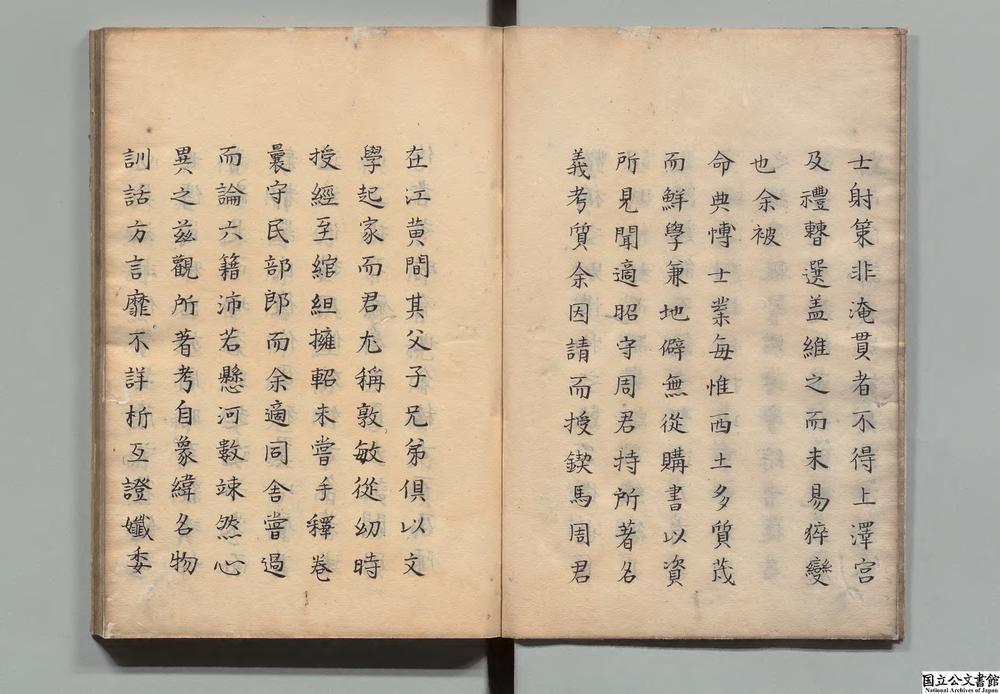 士射策非淹貫者不得上澤宮
及禮轊選盖維之而未易猝變
也余被
命典愽士業每惟西土多質茂
而鮮學兼地僻無從購書以資
所見聞適昭守周君持所著名
義考質余因請而授鍥焉周君
在江黄間其父子兄弟俱以文
學起家而君尤稱敦敏從幼時
授經至綰組擁軺未嘗手釋卷
曩守民部郎而余適同舍嘗過
而論六籍沛若懸河數竦然心
異之兹觀所著考自象緯名物
訓詁方言靡不詳析互證孅委
国立公文書館
National Archives of Japan